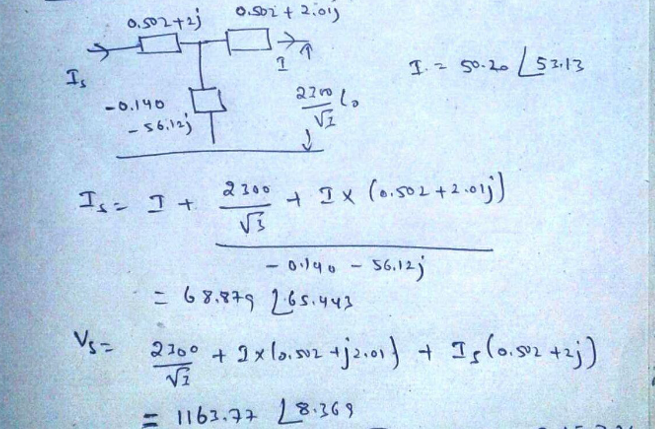 0.502+2j
0.502 + 2.01j
Is
I
I = 50.20 ∠53.13
-0.140
- 56.12j
2300
√3
Is = I + 2300 + I × (0.502 + 2.01j)
√3
- 0.140 - 56.12j
= 68.879 ∠65.443
Vs = 2300 + I × (0.502 + j2.01) + Is (0.502 + 2j)
√3
= 1163.77 ∠8.369